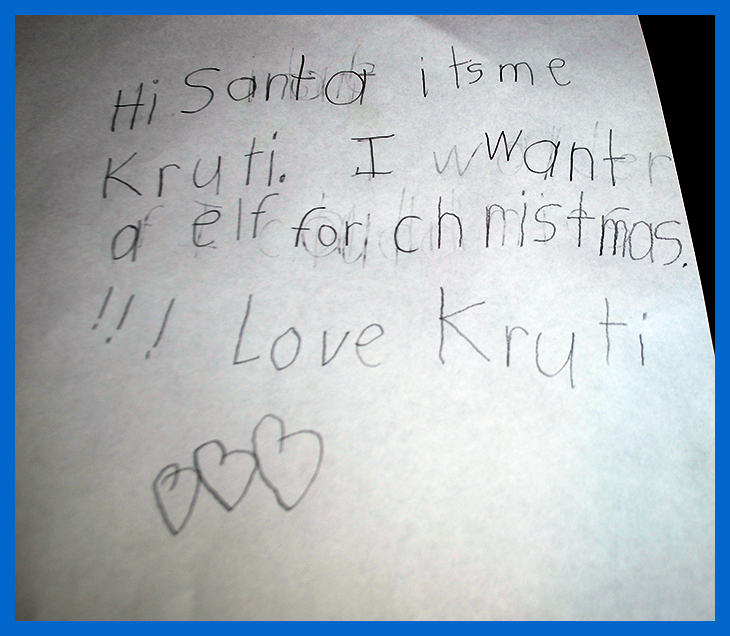 Hi Santa its me
Kruti. I want
a elf for christmas.
!!! Love Kruti